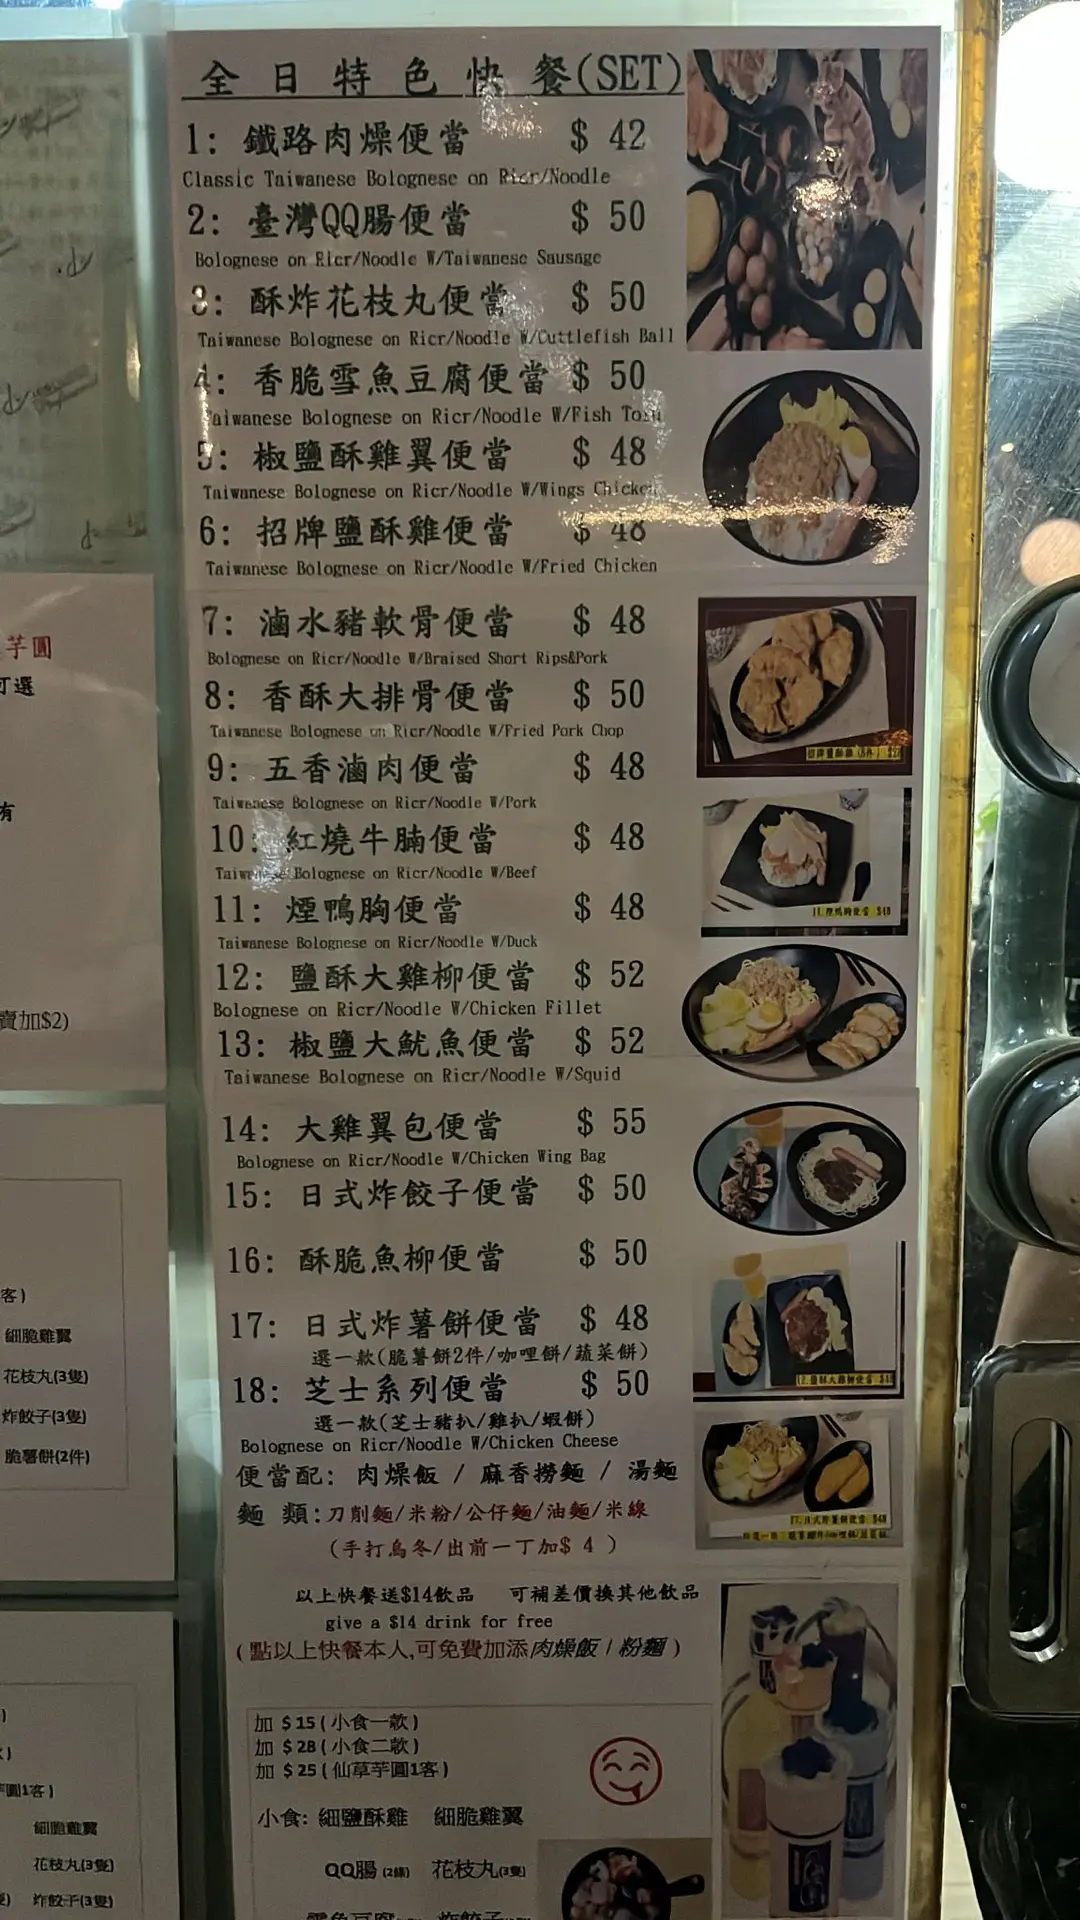 全日特色快餐(SET)
1: 鐵路肉燥便當 $ 42
Classic Taiwanese Bolognese on Ricr/Noodle
2: 臺灣QQ腸便當 $ 50
Bolognese on Ricr/Noodle W/Taiwanese Sausage
3: 酥炸花枝丸便當 $ 50
Taiwanese Bolognese on Ricr/Noodle W/Cuttlefish Ball
4: 香脆雪魚豆腐便當 $ 50
Taiwanese Bolognese on Ricr/Noodle W/Fish Tofu
5: 椒鹽酥雞翼便當 $ 48
Taiwanese Bolognese on Ricr/Noodle W/Wings Chicken
6: 招牌鹽酥雞便當 $ 48
Taiwanese Bolognese on Ricr/Noodle W/Fried Chicken
7: 滷水豬軟骨便當 $ 48
Bolognese on Ricr/Noodle W/Braised Short Rips&Pork
8: 香酥大排骨便當 $ 50
Taiwanese Bolognese on Ricr/Noodle W/Fried Pork Chop
9: 五香滷肉便當 $ 48
Taiwanese Bolognese on Ricr/Noodle W/Pork
10: 紅燒牛腩便當 $ 48
Taiwanese Bolognese on Ricr/Noodle W/Beef
11: 煙鴨胸便當 $ 48
Taiwanese Bolognese on Ricr/Noodle W/Duck
12: 鹽酥大雞柳便當 $ 52
Bolognese on Ricr/Noodle W/Chicken Fillet
13: 椒鹽大魷魚便當 $ 52
Taiwanese Bolognese on Ricr/Noodle W/Squid
14: 大雞翼包便當 $ 55
Bolognese on Ricr/Noodle W/Chicken Wing Bag
15: 日式炸餃子便當 $ 50
16: 酥脆魚柳便當 $ 50
17: 日式炸薯餅便當 $ 48
選一款(脆薯餅2件/咖哩餅/蔬菜餅)
18: 芝士系列便當 $ 50
選一款(芝士豬扒/雞扒/蝦餅)
Bolognese on Ricr/Noodle W/Chicken Cheese
便當配: 肉燥飯 / 麻香撈麵 / 湯麵
麵 類:刀削麵/米粉/公仔麵/油麵/米線
(手打烏冬/出前一丁加$ 4 )
以上快餐送$14飲品 可補差價換其他飲品
give a $14 drink for free
(點以上快餐本人,可免費加添肉燥飯/粉麵)
加 $15(小食一款)
加 $28(小食二款)
加 $25(仙草芋圓1客)
小食: 細鹽酥雞 細脆雞翼
QQ腸(2條) 花枝丸(3隻)
招牌鹽酥雞
11.煙鴨胸便當 $48
12.鹽酥大雞柳便當
17.日式炸薯餅便當 $48
芋圓
可選
有
賣加$2)
客)
細脆雞翼
花枝丸(3隻)
炸餃子(3隻)
脆薯餅(2件)
圓1客)
細脆雞翼
花枝丸(3隻)
炸餃子(3隻)